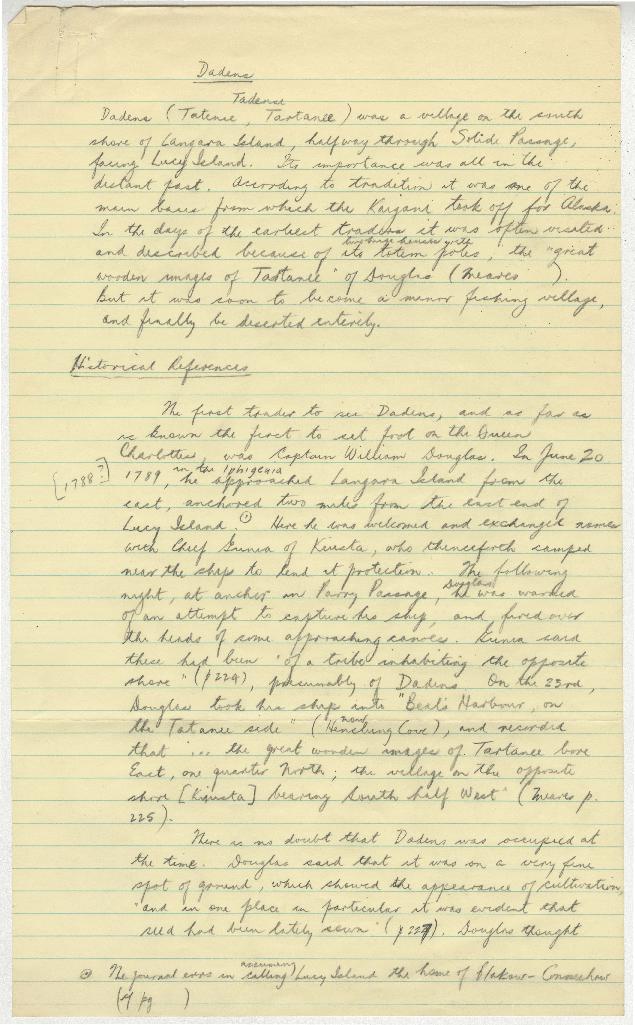 Dadens
Tadense
Dadens (Tatense, Tartanee) was a village on the south
shore of Langara Island, halfway through Solide Passage,
facing Lucy Island. Its importance was all in the
distant past. According to tradition it was one of the
main bases from which the Kaigani took off for Alaska.
In the days of the earliest traders it was often visited
and described because of its totem poles, the "great
wooden images of Tartanee" of Douglas (Meares     ).
But it was soon to become a minor fishing village,
and finally be deserted entirely.
Historical References
The first trader to see Dadens, and as far as
is known the first to set foot on the Queen
Charlottes, was Captain William Douglas. In June 20
[1788?] 1789, in the Iphigenia he approached Langara Island from the
east, anchored two miles from the east end of
Lucy Island. ① Here he was welcomed and exchanged names
with Chief Gunia of Kiusta, who thenceforth camped
near the ship to lend it protection. The following
night, at anchor in Parry Passage, Douglas he was warned
of an attempt to capture his ship, and fired over
the heads of some approaching canoes. Gunia said
these had been "of a tribe inhabiting the opposite
shore" (p 224), presumably of Dadens. On the 23rd,
Douglas took his ship into "Beal's Harbour, on
the Tatanee side" (now Henslung Cove), and recorded
that "... the great wooden images of Tartanee bore
East, one quarter North; the village on the opposite
shore [Kiusta] bearing South half West" (Meares p.
225).
There is no doubt that Dadens was occupied at
the time. Douglas said that it was on a very fine
spot of ground, which showed the appearance of cultivation,
"and in one place in particular it was evident that
seed had been lately sown" (p 227). Douglas thought
① The journal errs in assuming calling Lucy Island the home of Blakow-Conneehaw
(cf pg     )